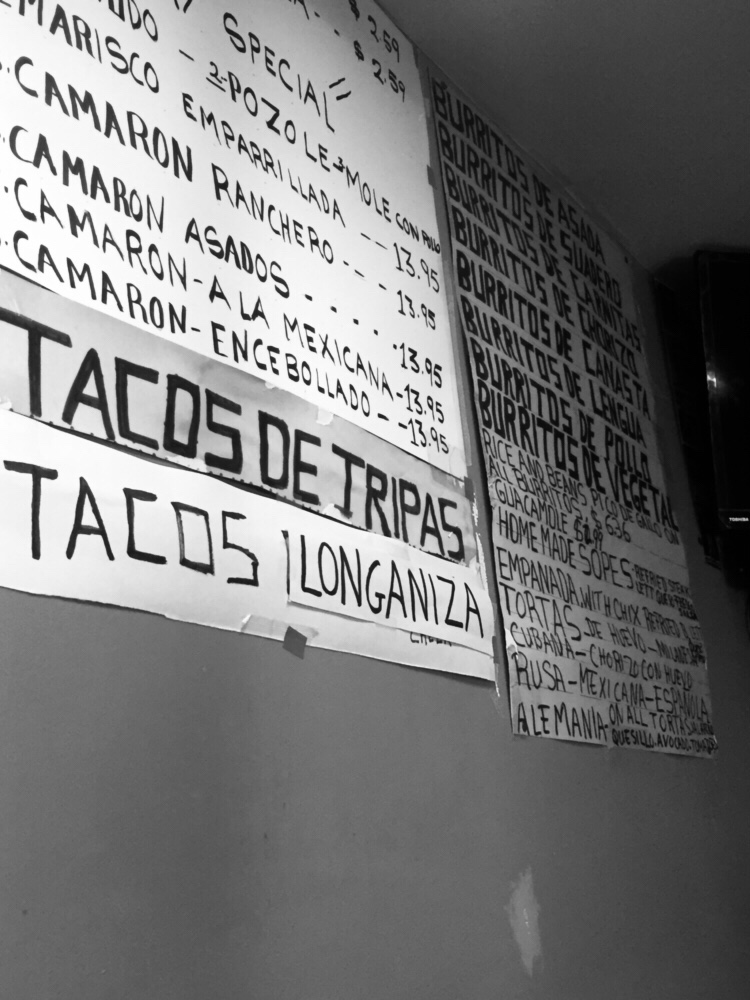 $ 2.59
- $ 2.59
SPECIAL"
- 2-POZOLE-3MOLE CON POLLO
MARISCO EMPARRILLADA -- 13.95
CAMARON RANCHERO --- 13.95
CAMARON ASADOS - - - - -13.95
CAMARON-A LA MEXICANA-13.95
CAMARON-ENCEBOLLADO--13.95
TACOS DE TRIPAS
TACOS LONGANIZA
BURRITOS DE ASADA
BURRITOS DE SUADERO
BURRITOS DE CARNITAS
BURRITOS DE CHORIZO
BURRITOS DE CANASTA
BURRITOS DE LENGUA
BURRITOS DE POLLO
BURRITOS DE VEGETAL
RICE AND BEANS PICO DE GALLO ON
ALL BURRITOS $ 6.36
GUACAMOLE
HOME MADE SOPES-REFRIED
EMPANADA.WITH CHIX REFRIED
TORTAS-DE HUEVO-
CUBANA-CHORIZO CON HUEVO
RUSA-MEXICANA-ESPAÑOLA
ALEMANIA-ON ALL TORTAS
QUESILLO.AVOCADO.
TOSHIBA